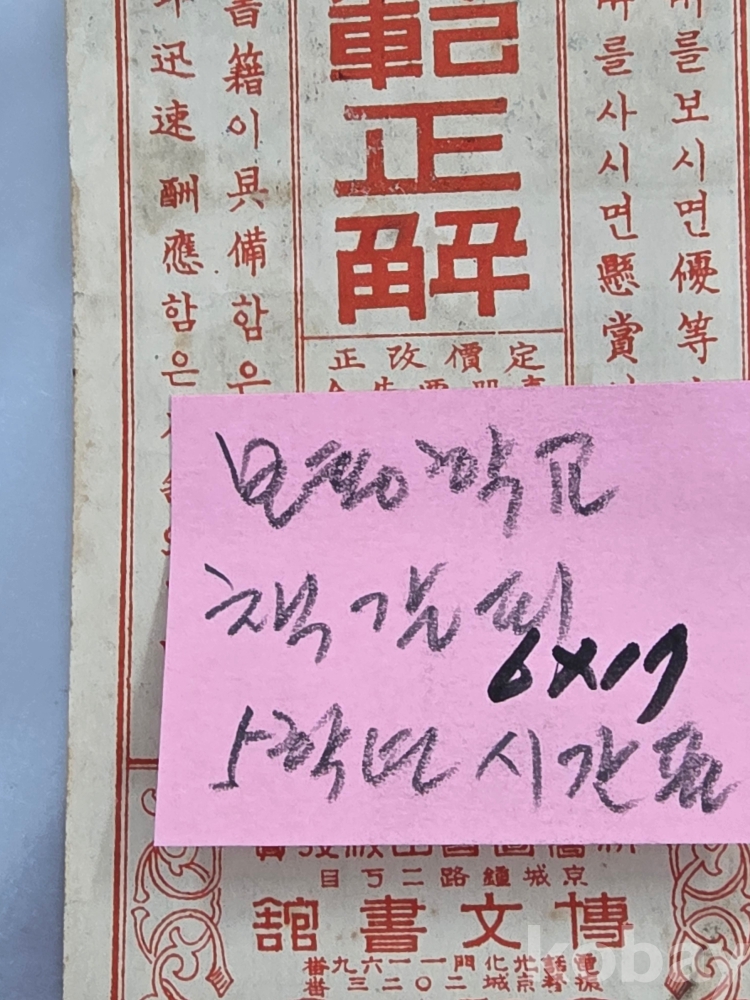 를보시면優等
를사시면懸賞
範正解
定價改正
書籍이具備함
迅速酬應함은
보통학교
책갈피
6x17
5학년 시간표
京城鍾路二丁目
博文書館
電話光化門一一六九番
振替京城二〇二三番
kobay